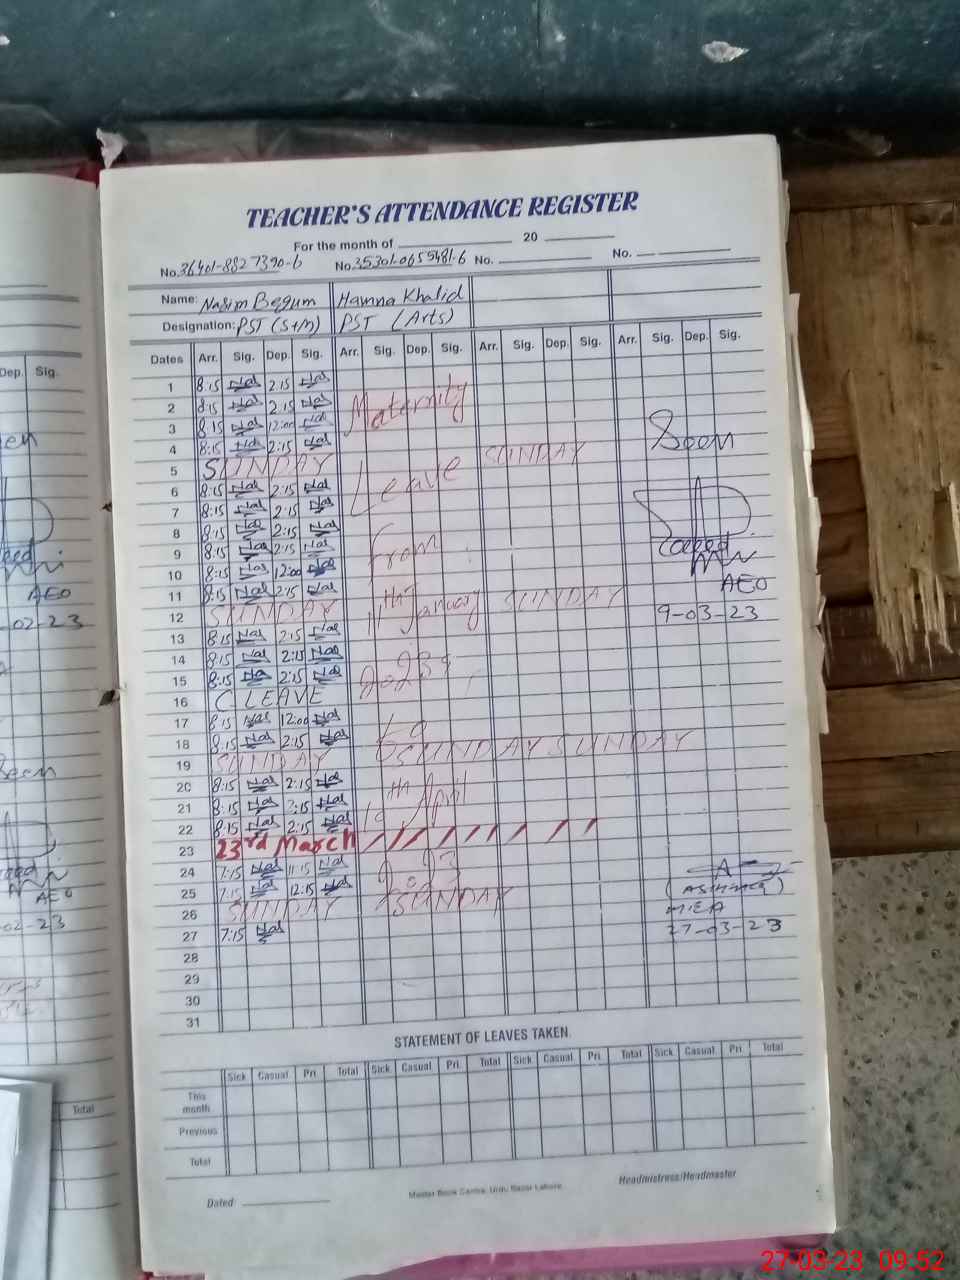 TEACHER'S ATTENDANCE REGISTER
For the month of 20
No. 36401-8827390-6 No. 35301-0655481-6 No. No.
Name: Nasim Begum Hamna Khalid
Designation: PST (S+M) PST (Arts)
Dates Arr. Sig. Dep. Sig. Arr. Sig. Dep. Sig. Arr. Sig. Dep. Sig. Arr. Sig. Dep. Sig.
1 8:15 2:15
2 8:15 2:15 Maternity
3 8:15 12:00
4 8:15 2:15 Seen
5 SUNDAY SUNDAY
6 8:15 2:15 Leave
7 8:15 2:15
8 8:15 2:15
9 8:15 2:15 From
10 8:15 12:00
11 8:15 2:15 AEO
12 SUNDAY 11th January SUNDAY 9-03-23
13 8:15 2:15
14 8:15 2:15
15 8:15 2:15 2023
16 C. LEAVE
17 8:15 12:00
18 8:15 2:15 to
19 SUNDAY SUNDAY SUNDAY
20 8:15 2:15
21 8:15 2:15 April
22 8:15 2:15
23 23rd March
24 7:15 11:15
25 7:15 12:15
26 SUNDAY SUNDAY MEA
27 7:15 27-03-23
28
29
30
31
STATEMENT OF LEAVES TAKEN.
Sick Casual Pri. Total Sick Casual Pri. Total Sick Casual Pri. Total Sick Casual Pri. Total
This month
Previous
Total
Dated
Master Book Centre, Urdu Bazar Lahore.
Headmistress/Headmaster
Dep. Sig.
AEO
-02-23
Seen
AEO
-02-23
Total
27-03-23 09:52